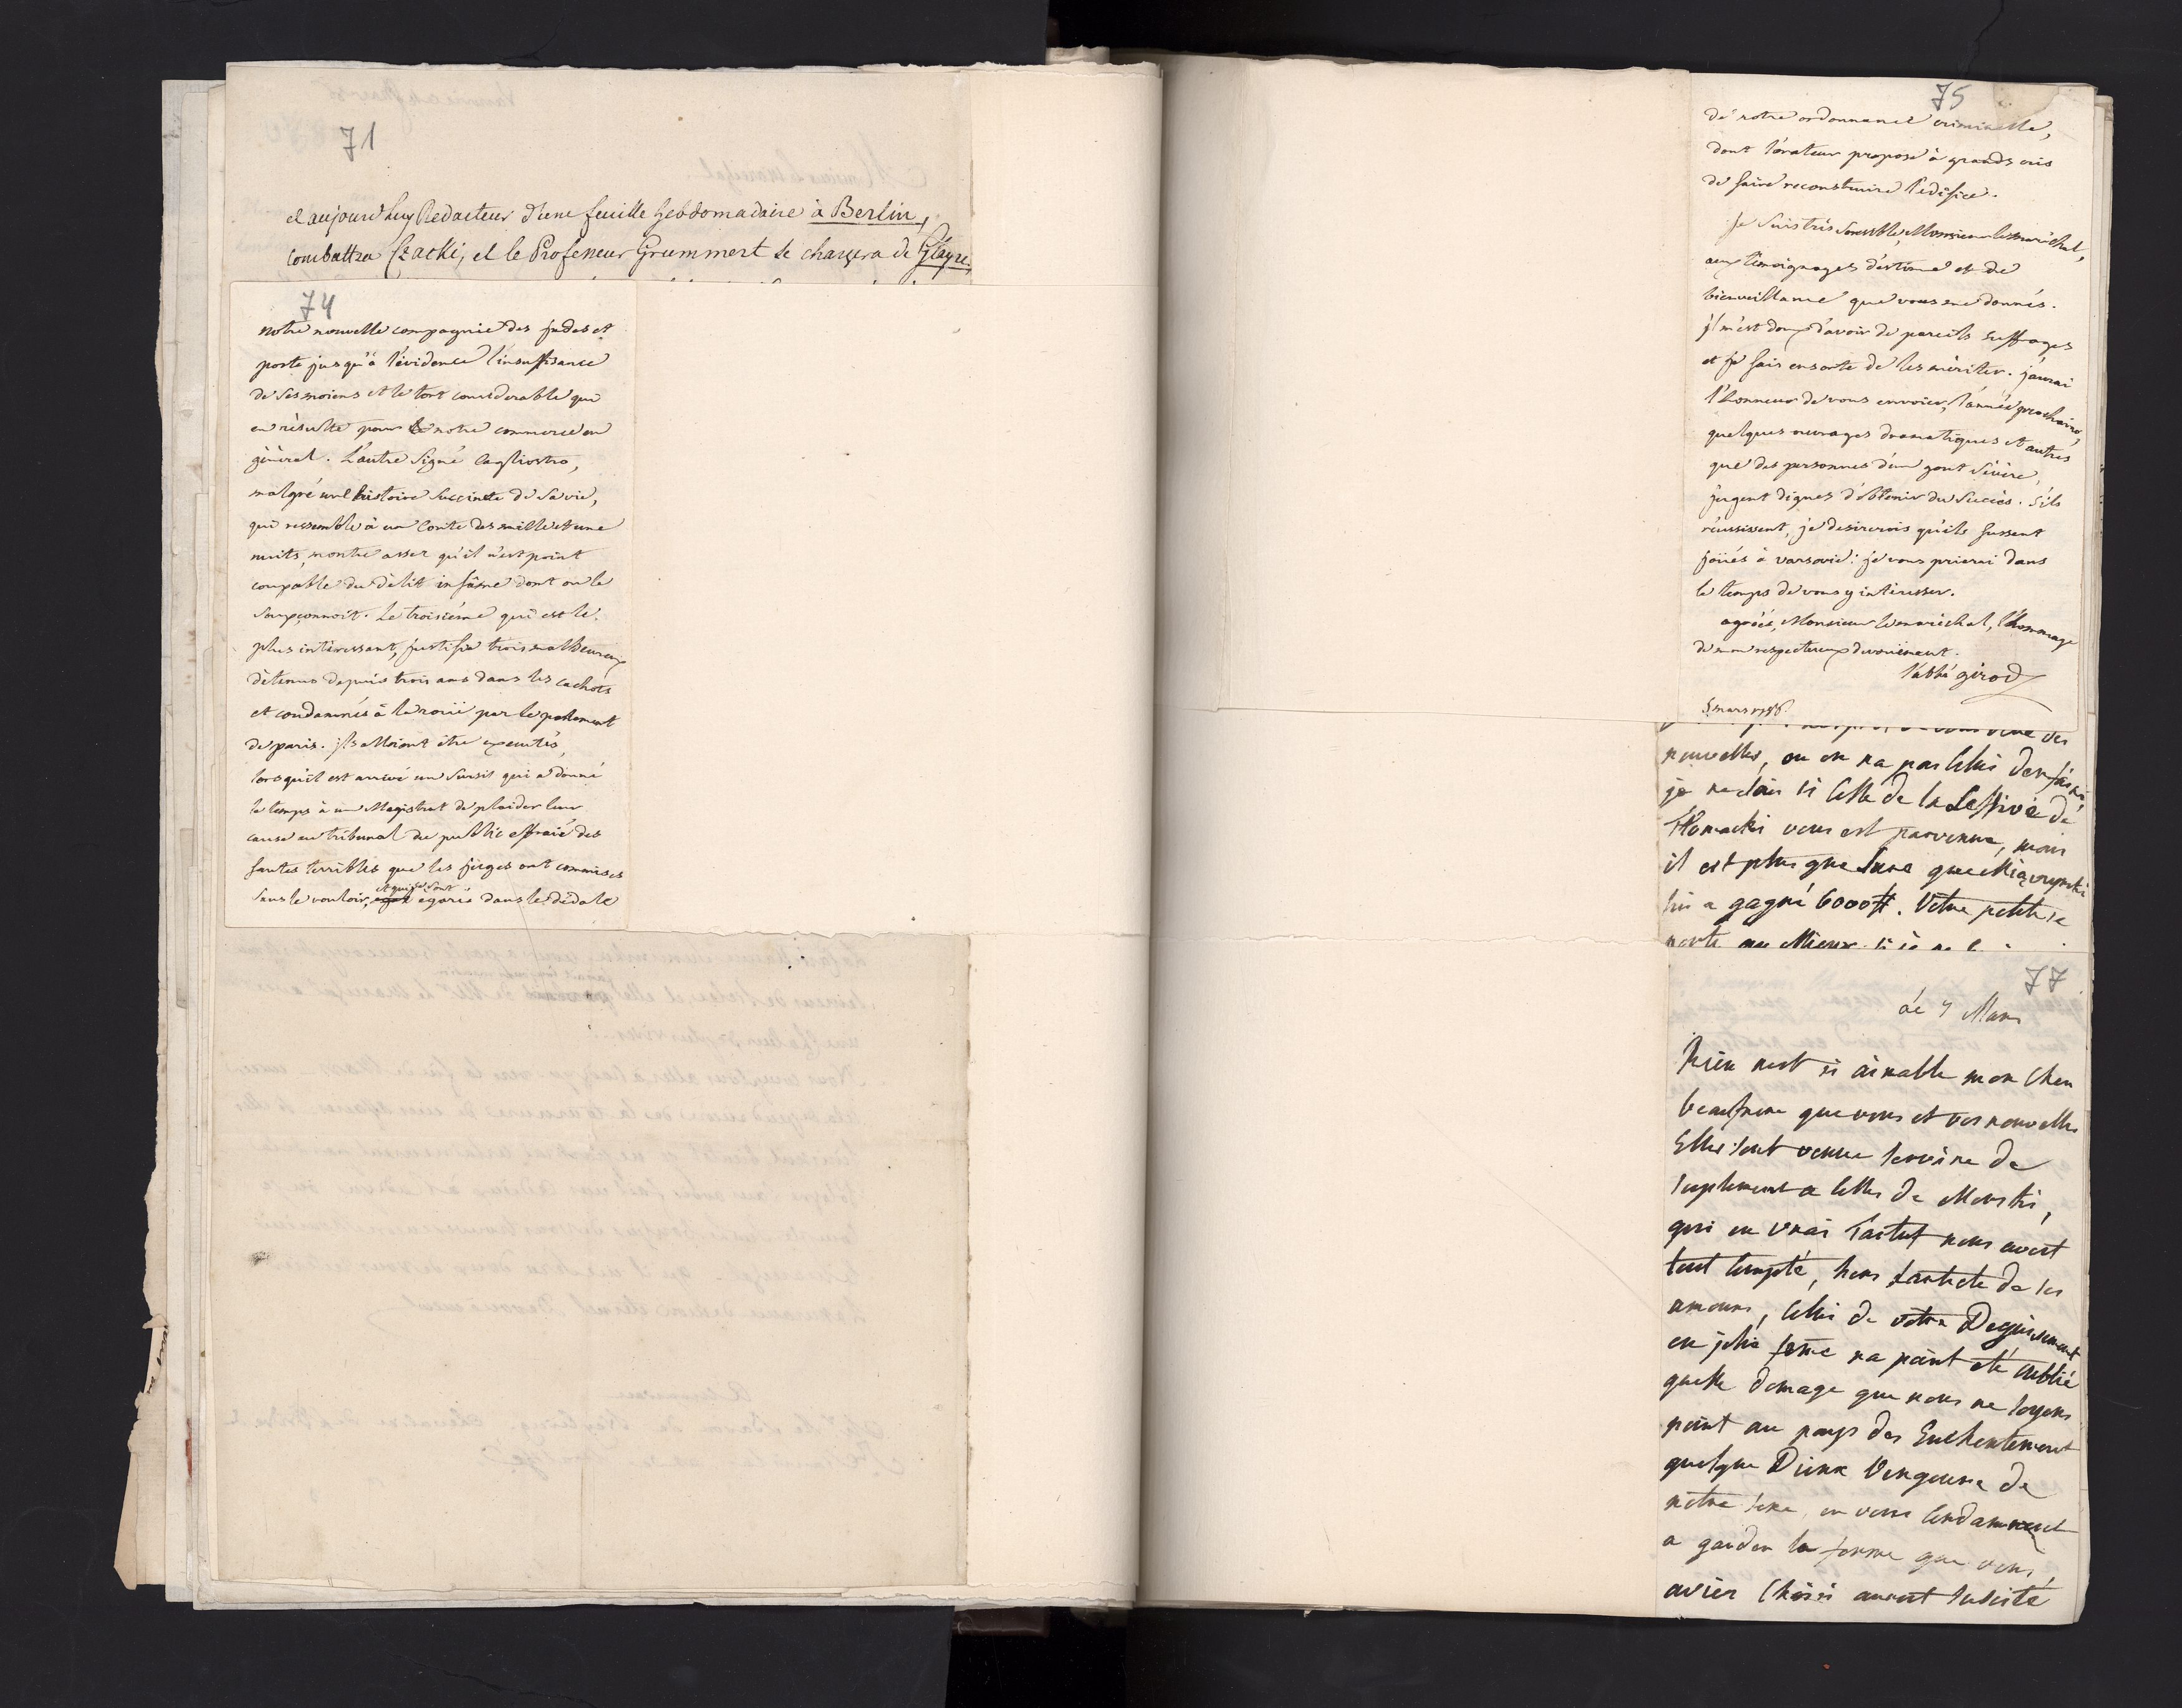 71
et aujourd'huy Redacteur d'une feuille hebdomadaire à Berlin,
combattra Czacki, et le Professeur Grummert se chargera de Glayre.
74
notre nouvelle compagnie des indes et
porte jusqu'à l'évidence l'insuffisance
de ses moiens et le tort considerable qui
en résulte pour notre commerce en
général. L'autre signé Cagliostro,
malgré une histoire succincte de sa vie,
qui ressemble à un Conte des mille et une
nuits, montre assez qu'il n'est point
coupable du délit infâme dont on le
soupçonnoit. Le troisiéme qui est le
plus intéressant, justifie trois malheureux
détenus depuis trois ans dans les cachots
et condamnés à la roüe par le parlement
de paris. ils alloient être executés,
lorsqu'il est arrivé un sursis qui a donné
le temps à un Magistrat de plaider leur
cause au tribunal du public effraié des
fautes terribles que les juges ont commises
sans le vouloir, et qui se sont egarés dans le dédale
75
de notre ordonnance criminelle,
dont l'orateur propose à grands cris
de faire reconstruire l'édifice.
Je suis très sensible, Monsieur le maréchal,
aux témoignages d'estime et de
bienveillance que vous me donnés.
il m'est doux d'avoir de pareils suffrages
et je fais ensorte de les mériter. j'aurai
l'honneur de vous envoier, l'année prochaine,
quelques ouvrages dramatiques et autres
que des personnes d'un gout sévère,
jugent dignes d'obtenir du succès. S'ils
réussissent, je desirerois qu'ils fussent
joüés à varsovie: je vous prierai dans
le temps de vous y intéresser.
agréés, Monsieur le maréchal, l'hommage
de mon respectueux devoüement.
l'abbé girod
5 mars 1786.
nouvelles, ou on na pas celui den faire,
je ne sais si celle de la Lessive de
Tlomacki vous est parvenue, mais
il est plus que sure que
lui a gagné 6000#. Votre petite se
porte au Mieux
77
ce 7 Mars
Rien nest si aimable mon cher
beaufrere que vous et vos nouvelles
Elles sont venue servire de
suplement a celles de
qui en vrai Tartuf nous avoit
tout compté, hors l'article de ses
amours, celui de votre Deguisement
en jolie feme na point eté oublié
quelle domage que nous ne soyons
point au pays des Enchentement
quelque Vengeure de
notre sexe, en vous Condamnent
a garder la forme que vous
aviez Choisi auroit